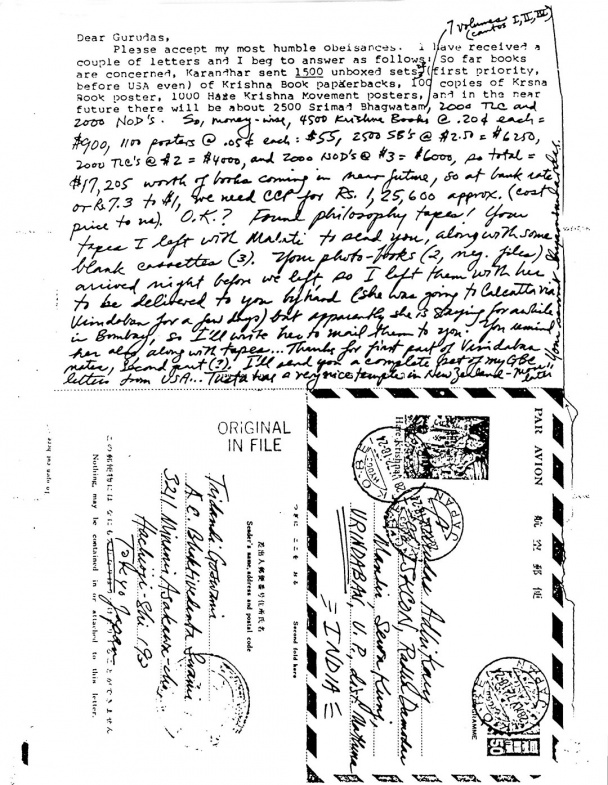 7 volumes
(cantos I, II, IV)
Dear Gurudas,
Please accept my most humble obeisances. I have received a
couple of letters and I beg to answer as follows: So far books
are concerned, Karandhar sent 1500 unboxed sets (first priority,
before USA even) of Krishna Book papaerbacks, 100 copies of Krsna
Book poster, 1000 Hare Krishna Movement posters, and in the near
future there will be about 2500 Srimad Bhagwatam, 2000 TLC and
2000 NOD's. So, money-wise, 4500 Krishna Books @ .20¢ each =
$900, 1100 posters @ .05¢ each: $55, 2500 SB's @ $2.50 = $6250,
2000 TLC's @ $2 = $4000, and 2000 NOD's @ $3 = $6000, so total =
$17,205 worth of books coming in near future, so at bank rate
of Rs 7.3 to $1, we need CCP for Rs. 1,25,600 approx. (cost
price to us). O.K.? Found philosophy tapes! Your
tapes I left with Malati to send you, along with some
blank cassettes (3). Your photo-books (2, neg. files)
arrived night before we left, so I left them with her
to be delivered to you by hand (she was going to Calcutta via
Vrindaban for a few days) but apparently she is staying for awhile
in Bombay, so I'll write her to mail them to you. You remind
her also, along with tapes... Thanks for first part of Vrindaban
notes, second part (?). I'll send you a complete set of my GBC
letters from USA... has a very nice temple in New Zealand—more later
ORIGINAL
IN FILE
Tridandi Goswami
A.C. Bhaktivedanta Swami
3211 Minami Asakawa-cho,
Hachioji-Shi 193
Tokyo Japan
差出人郵便番号住所氏名
Sender's name, address and postal code
つぎに ここを おる
Second fold here
この郵便物には なにも
Nothing, may be contained in or attached to this letter.
PAR AVION 航空郵便
Hare Krishna!
JAPAN
Adhikary
ISKCON, Radha Damodar
Mandir, Seva Kunj
VRINDABAN, U.P. dist. Mathura
INDIA
50